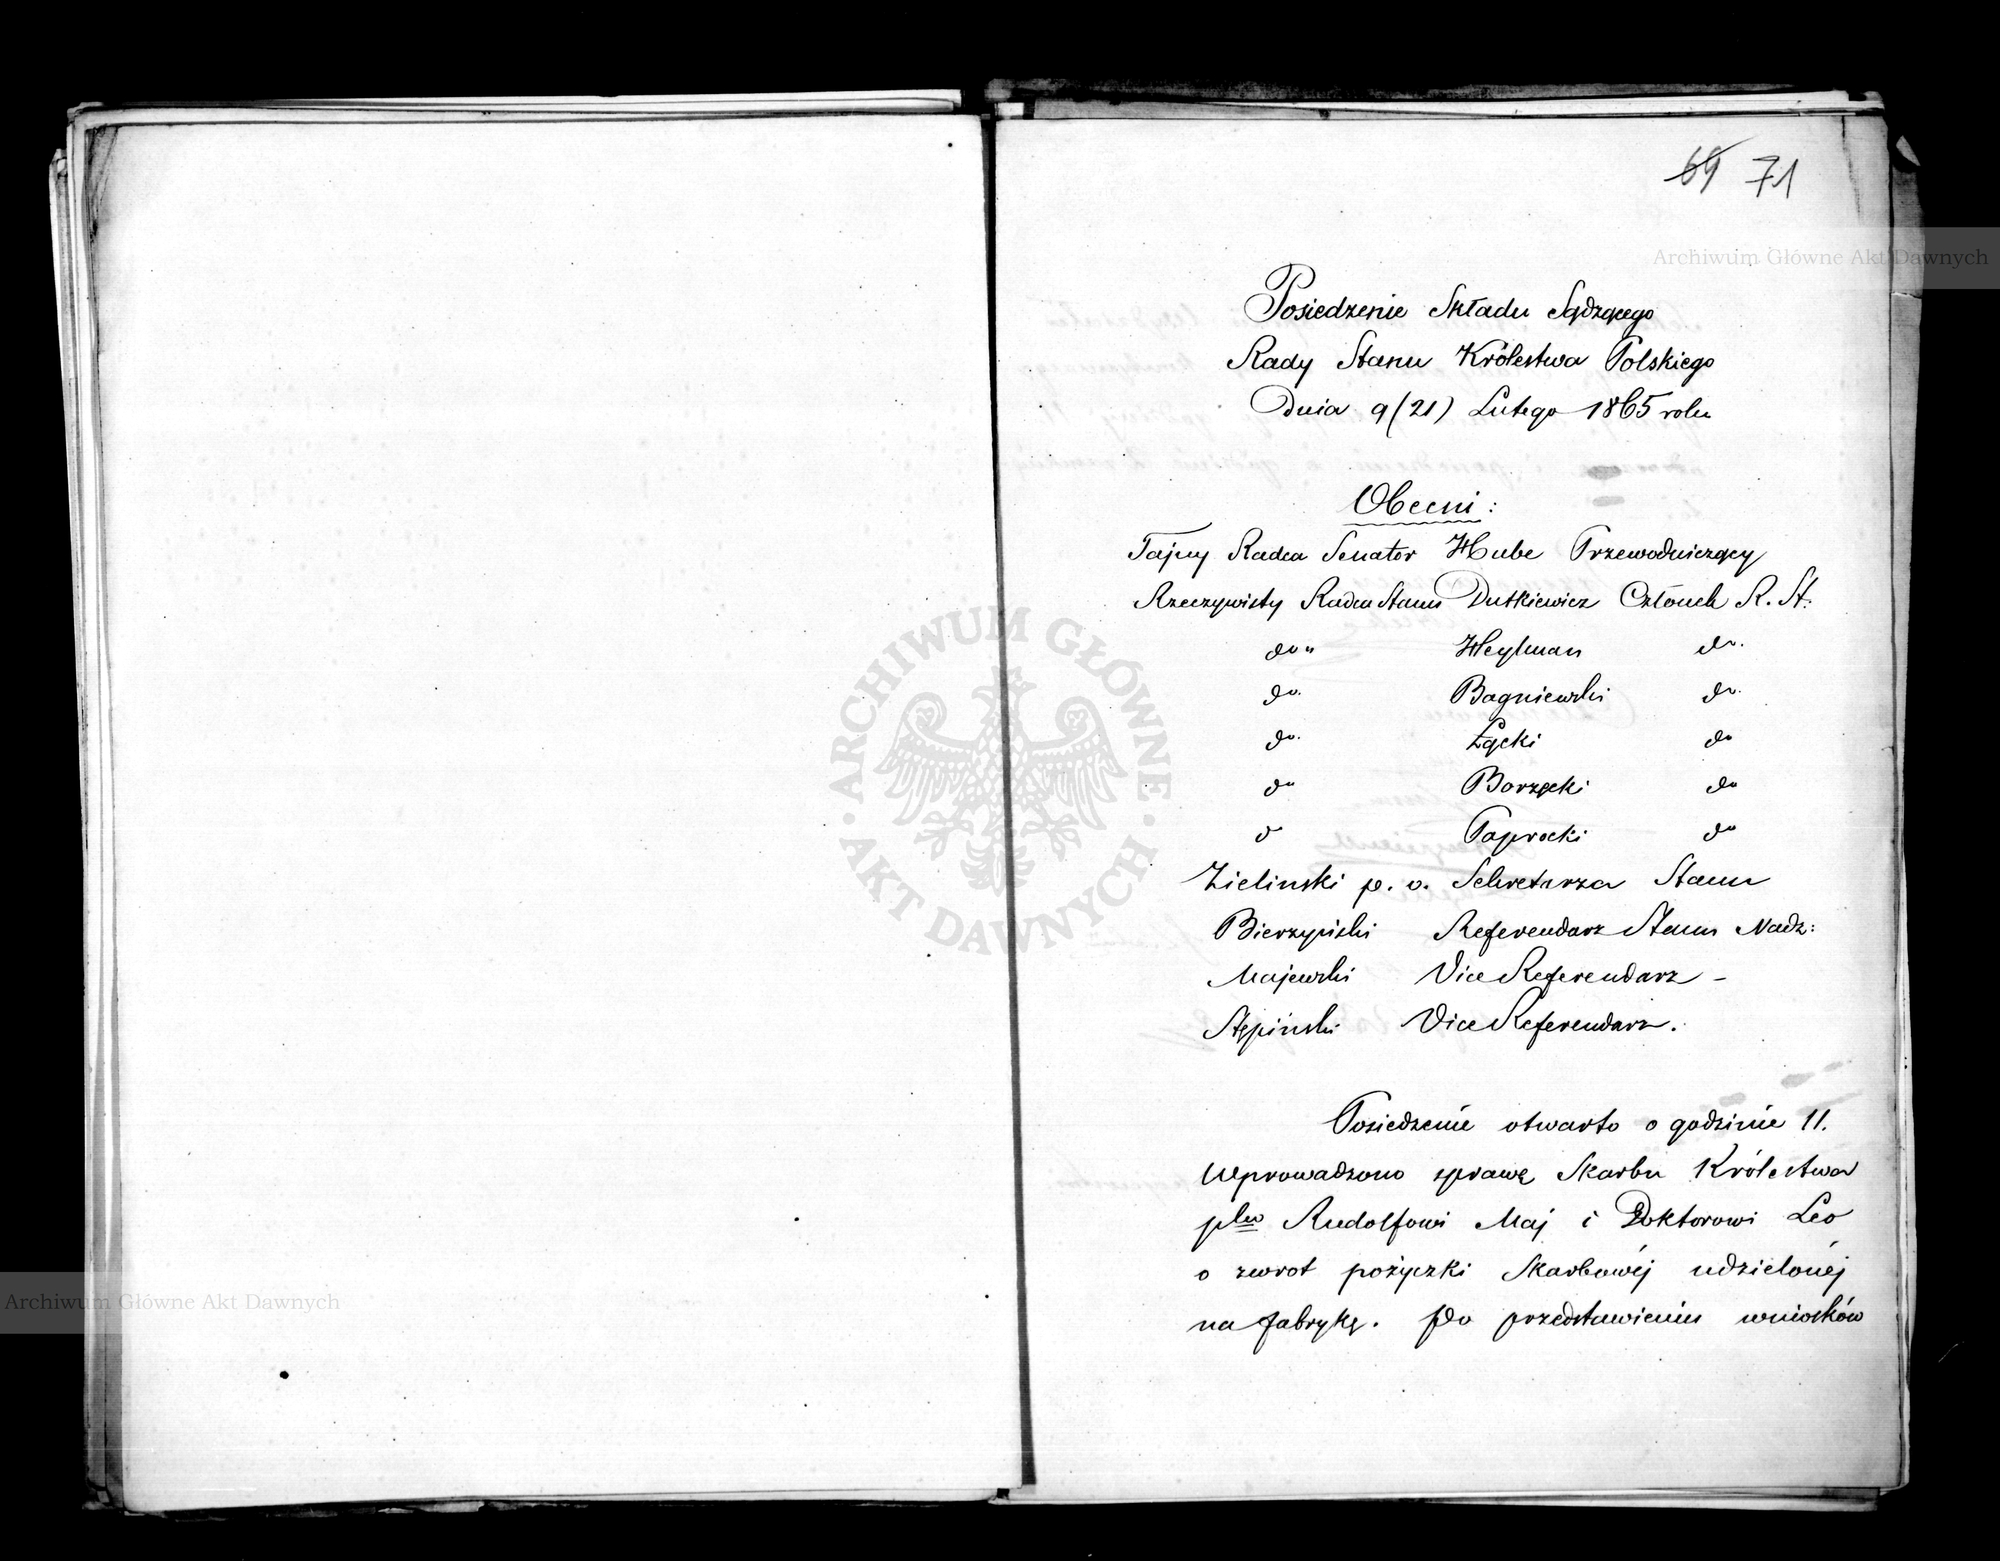 69 71
Archiwum Główne Akt Dawnych
Posiedzenie Składu Sądzącego
Rady Stanu Królestwa Polskiego
Dnia 9 (21) Lutego 1865 roku
Obecni:
Tajny Radca Senator Hube Przewodniczący
Rzeczywisty Radca Stanu Dutkiewicz Członek R. St:
do " Heylman do.
do. Bagniewski do.
do. Łącki do
do Borzęcki do
d Paprocki do
Zieliński p. o. Sekretarza Stanu
Bierzyński Referendarz Stanu Nadz:
Majewski Vice Referendarz –
Stępiński Vice Referendarz.
Posiedzenie otwarto o godzinie 11.
Wprowadzono sprawę Skarbu Królestwa
plko Rudolfowi Maj i Doktorowi Leo
o zwrot pożyczki Skarbowéj udzielonéj
na fabrykę. Po przedstawieniu wniosków
ARCHIWUM GŁÓWNE · AKT DAWNYCH ·
Archiwum Główne Akt Dawnych